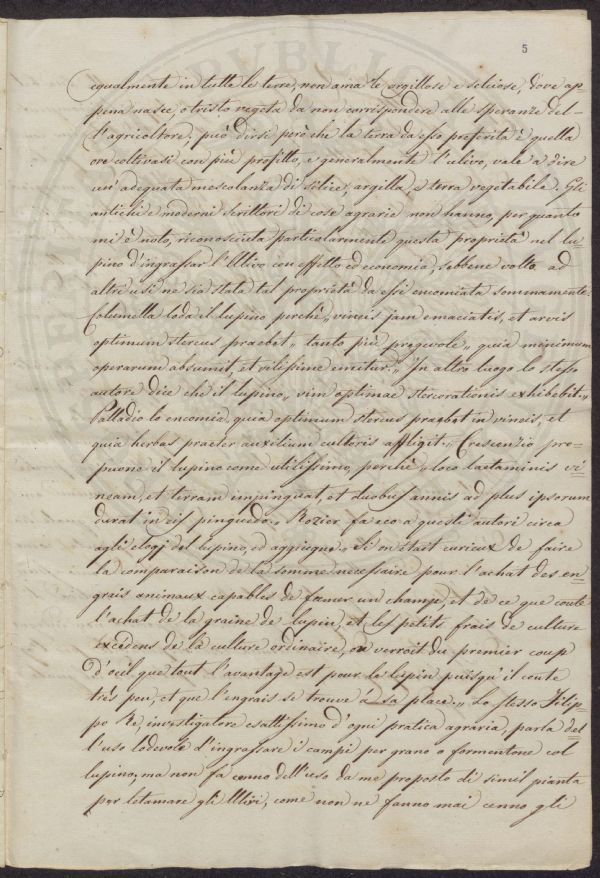 5
egualmente in tutte le terre, non ama le argillose e selciose, dove ap
pena nasce, o trista vegeta da non corrispondere alle speranze del-
l'agricoltore; può dirsi però che la terra da esso preferita è quella
ove coltivasi con più profitto, e generalmente l'ulivo, vale a dire
un'adequata mescolanza di silice, argilla, e terra vegetabile. Gli
antichi e moderni scrittori di cose agrarie non hanno, per quanto
mi è noto, riconosciuta particolarmente questa proprietà nel lu
pino d'ingrassar l'Ulivo con effetto ed economia, sebbene volto ad
altri usi ne sia stata tal proprietà da essi encomiata sommamente.
Columella loda il lupino perchè „ vineis jam emaciatis, et arvis
optimum stercus praebet „ tanto più pregevole „ quia minimum
operarum absumit, et vilissime emitur." In altro luogo lo stesso
autore dice che il lupino „ vim optimae stercorationis exhibebit „
Palladio lo encomia, quia optimum stercus praebet in vineis, et
quia herbas praeter auxilium cultoris affligit „ Crescenzio pro-
puone il lupino come utilissimo, perchè „ loco laetaminis vi
neam, et terram impinguat, et duobus annis ad plus ipsorum
durat in eis pinguedo „ Rozier fa eco a questi autori circa
agli elogj del lupino, ed aggiugne „ Si on était curieux de faire
la comparaison de la somme necessaire pour l'achat des en
grais animaux capables de fumer un champ, et de ce que coute
l'achat de la graine de lupin, et les petits frais de culture
excedens de la culture ordinaire, on verroit du premier coup
d'oeil que tout l'avantage est pour le lupin puisqu'il coute
très peu, et que l'engrais se trouve à sa place „ Lo stesso Filip
po Re, investigatore esattissimo d'ogni pratica agraria, parla del
l'uso lodevole d'ingrassare i campi per grano o formentone col
lupino; ma non fa cenno dell'uso da me proposto di simil pianta
per letamare gli Ulivi, come non ne fanno mai cenno gli